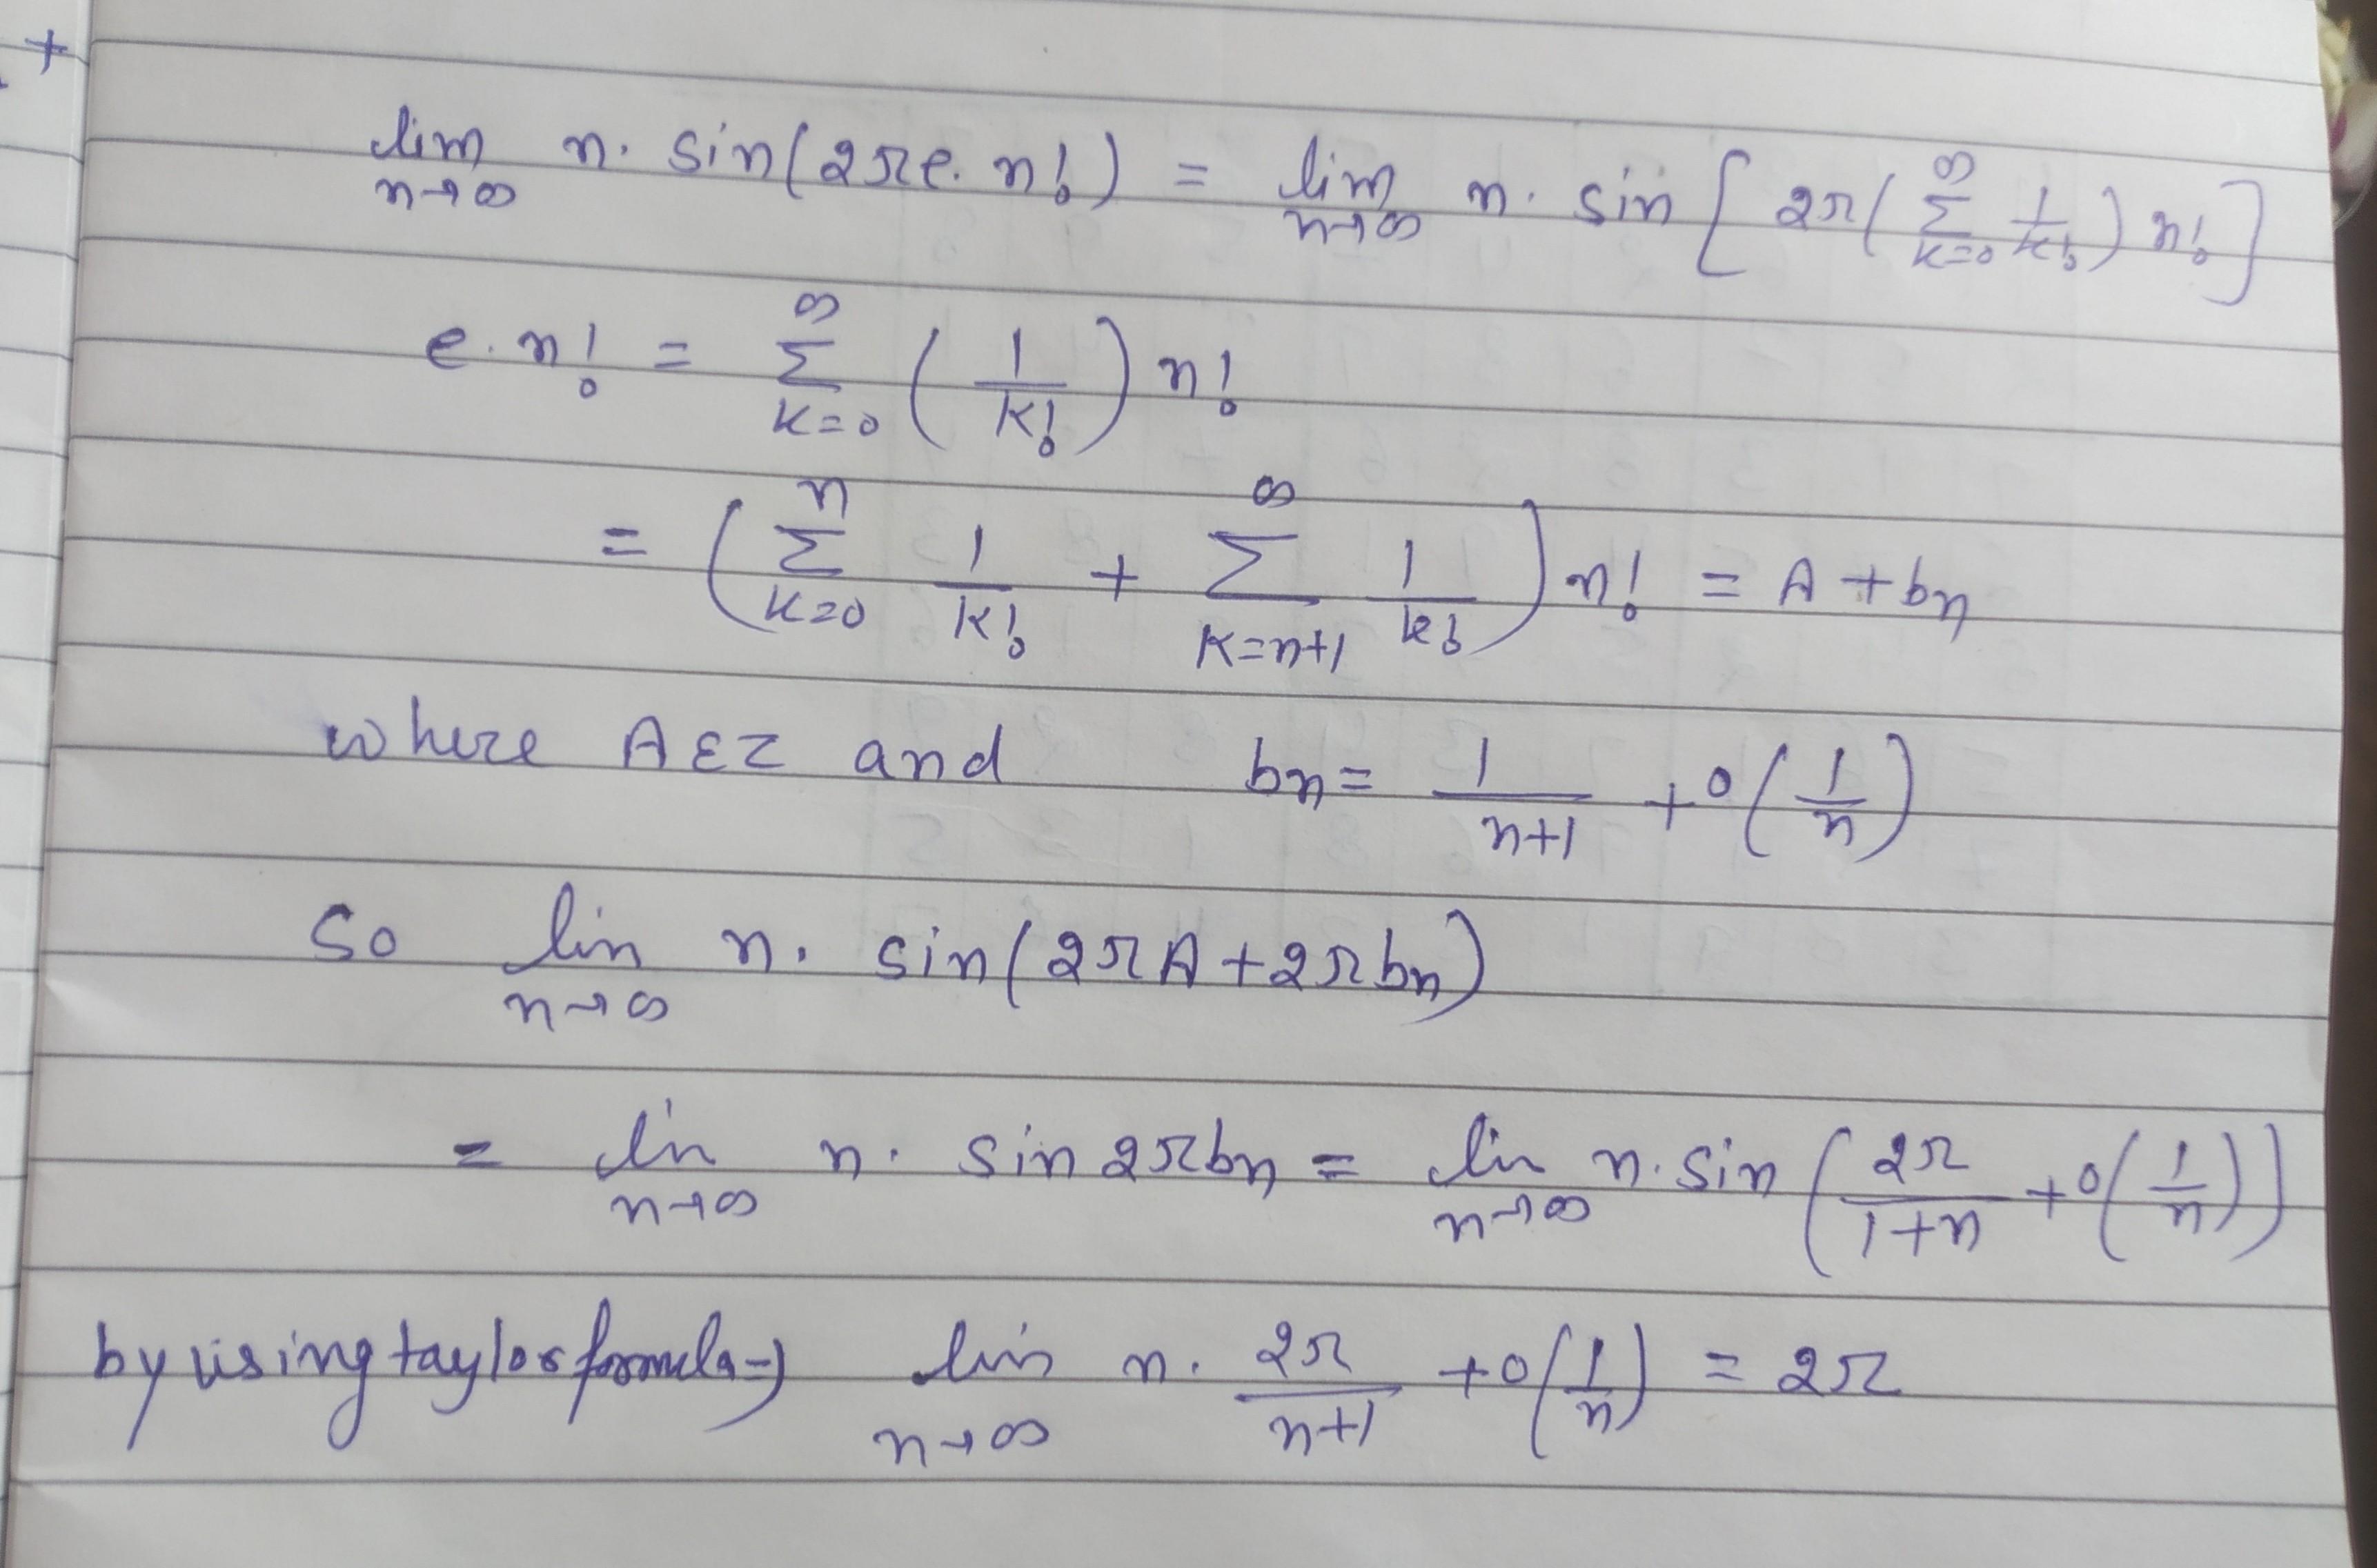 +
lim n→∞ n. sin(2πe. n!) = lim n→∞ n. sin[2π(∑ k=0 ∞ 1/k!) n!]
e. n! = ∑ k=0 ∞ (1/k!) n!
= (∑ k=0 n 1/k! + ∑ k=n+1 ∞ 1/k!) n! = A + bn
where A ε Z and bn = 1/(n+1) + o(1/n)
So lim n→∞ n. sin(2πA + 2πbn)
= lim n→∞ n. sin 2πbn = lim n→∞ n. sin(2π/(1+n) + o(1/n))
by using taylor formula ⇒ lim n→∞ n. 2π/(n+1) + o(1/n) = 2π